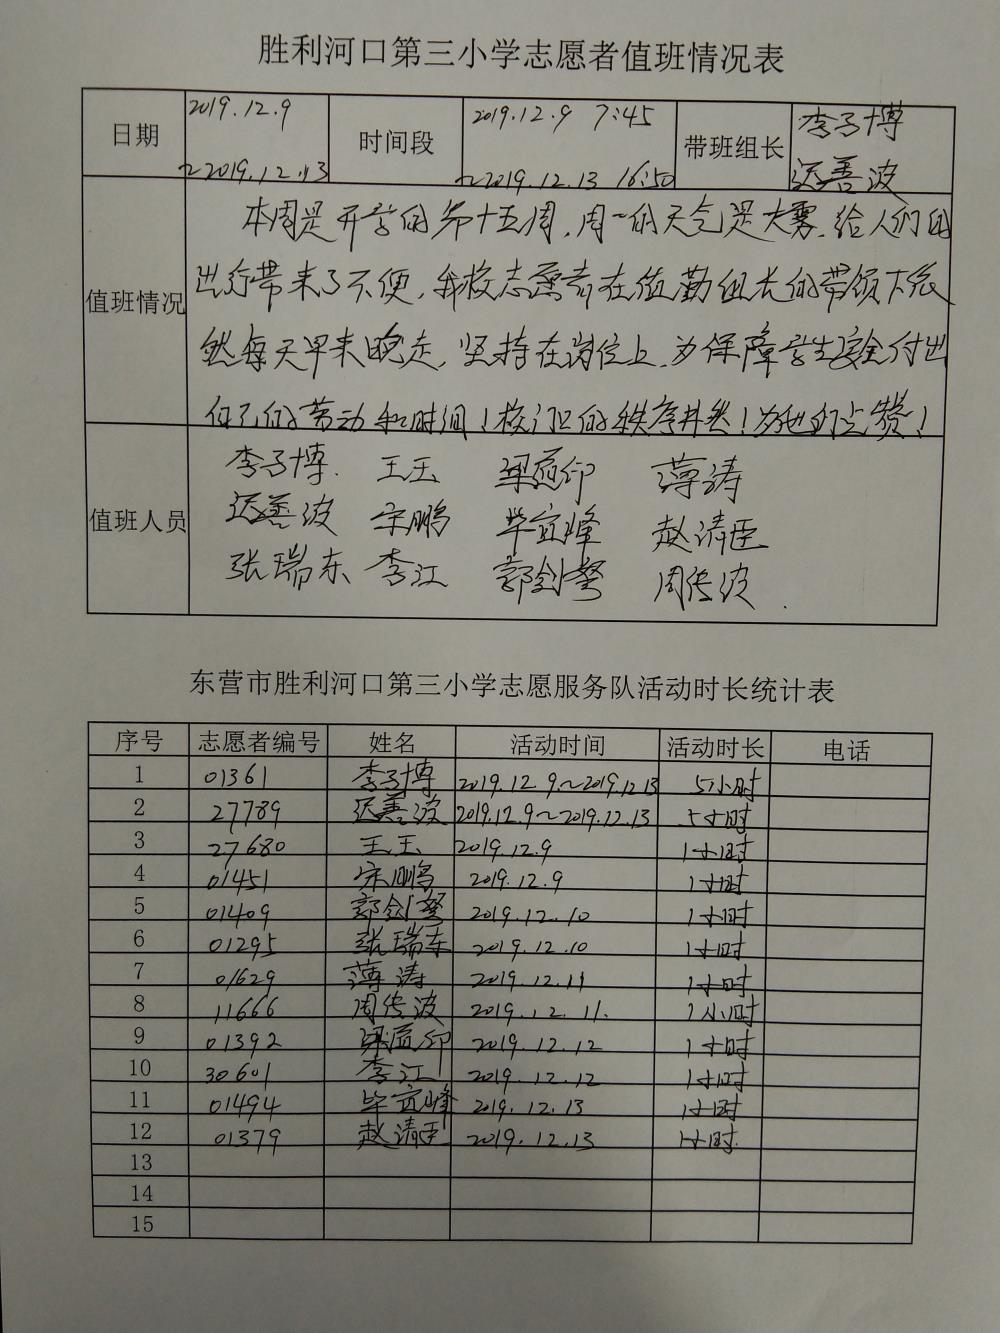 胜利河口第三小学志愿者值班情况表
日期 2019.12.9 ~2019.12.13 时间段 2019.12.9 7:45 ~2019.12.13 16:50 带班组长 李子博 迟善波
值班情况
本周是开学的第十五周,周一的天气是大雾,给人们的
出行带来了不便,我校志愿者在值勤组长的带领下依
然每天早来晚走,坚持在岗位上,为保障学生安全付出
自己的劳动和时间!校门口的秩序井然!为他们点赞!
值班人员
李子博 王玉 梁益印 薄涛
迟善波 宋鹏 毕宜峰 赵清臣
张瑞东 李江 郭剑 周传波
东营市胜利河口第三小学志愿服务队活动时长统计表
序号 志愿者编号 姓名 活动时间 活动时长 电话
1 01361 李子博 2019.12.9~2019.12.13 5小时
2 27789 迟善波 2019.12.9~2019.12.13 5小时
3 27680 王玉 2019.12.9 1小时
4 01451 宋鹏 2019.12.9 1小时
5 01409 郭剑 2019.12.10 1小时
6 01295 张瑞东 2019.12.10 1小时
7 01629 薄涛 2019.12.11 1小时
8 11666 周传波 2019.12.11. 1小时
9 01392 梁益印 2019.12.12 1小时
10 30601 李江 2019.12.12 1小时
11 01494 毕宜峰 2019.12.13 1小时
12 01379 赵清臣 2019.12.13 1小时.
13
14
15